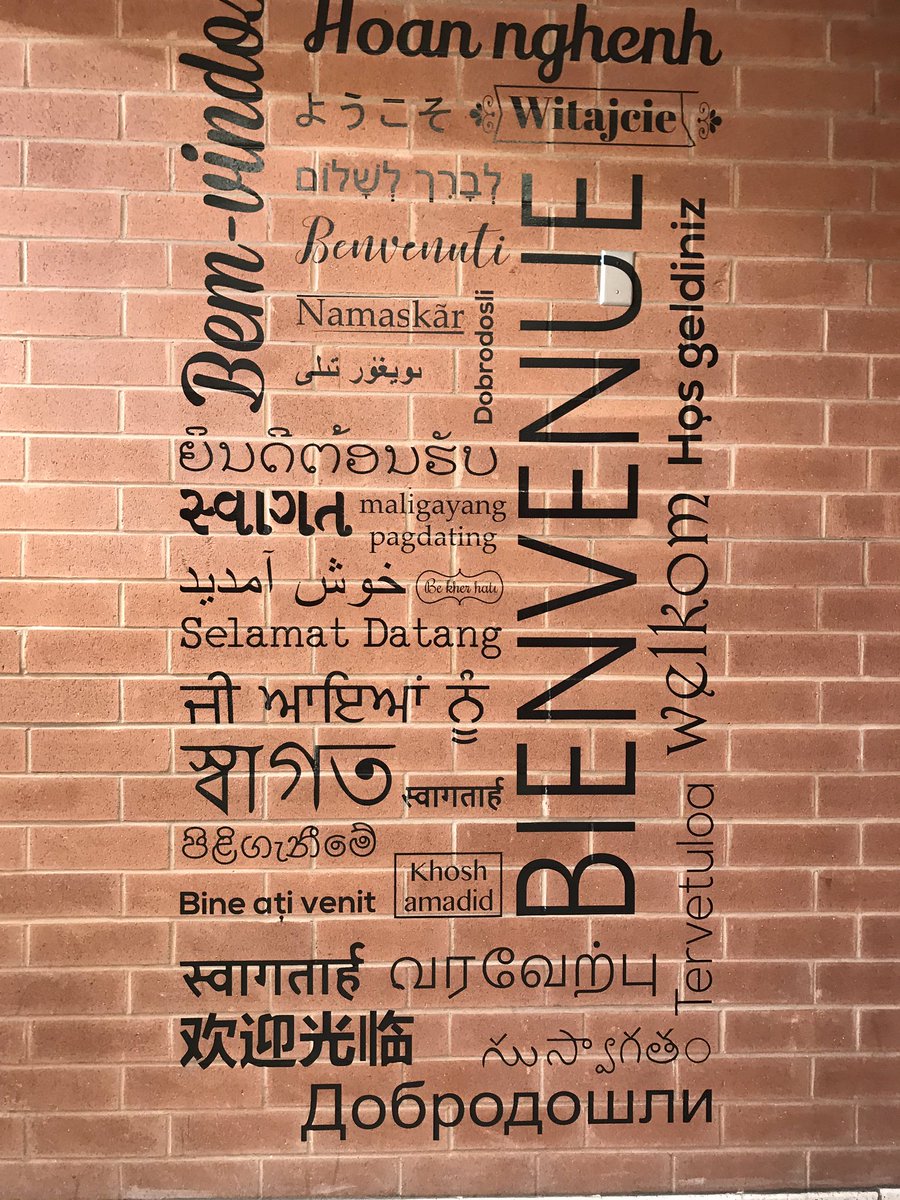 Hoan nghenh
Bem-vindo
ようこそ
Witajcie
לְבָרֵךְ לְשָׁלוֹם
Benvenuti
BIENVENUE
Hoş geldiniz
Namaskãr
Dobrodosli
ىويغۇر تىلى
ຍິນດີຕ້ອນຮັບ
સ્વાગત
maligayang
pagdating
خوش آمدید
Be kher hatı
Selamat Datang
Welkom
ਜੀ ਆਇਆਂ ਨੂੰ
স্বাগত
स्वागतार्ह
පිළිගැනීමේ
Khosh
amadid
Bine ați venit
Tervetuloa
स्वागतार्ह
வரவேற்பு
欢迎光临
సుస్వాగతం
Добродошли